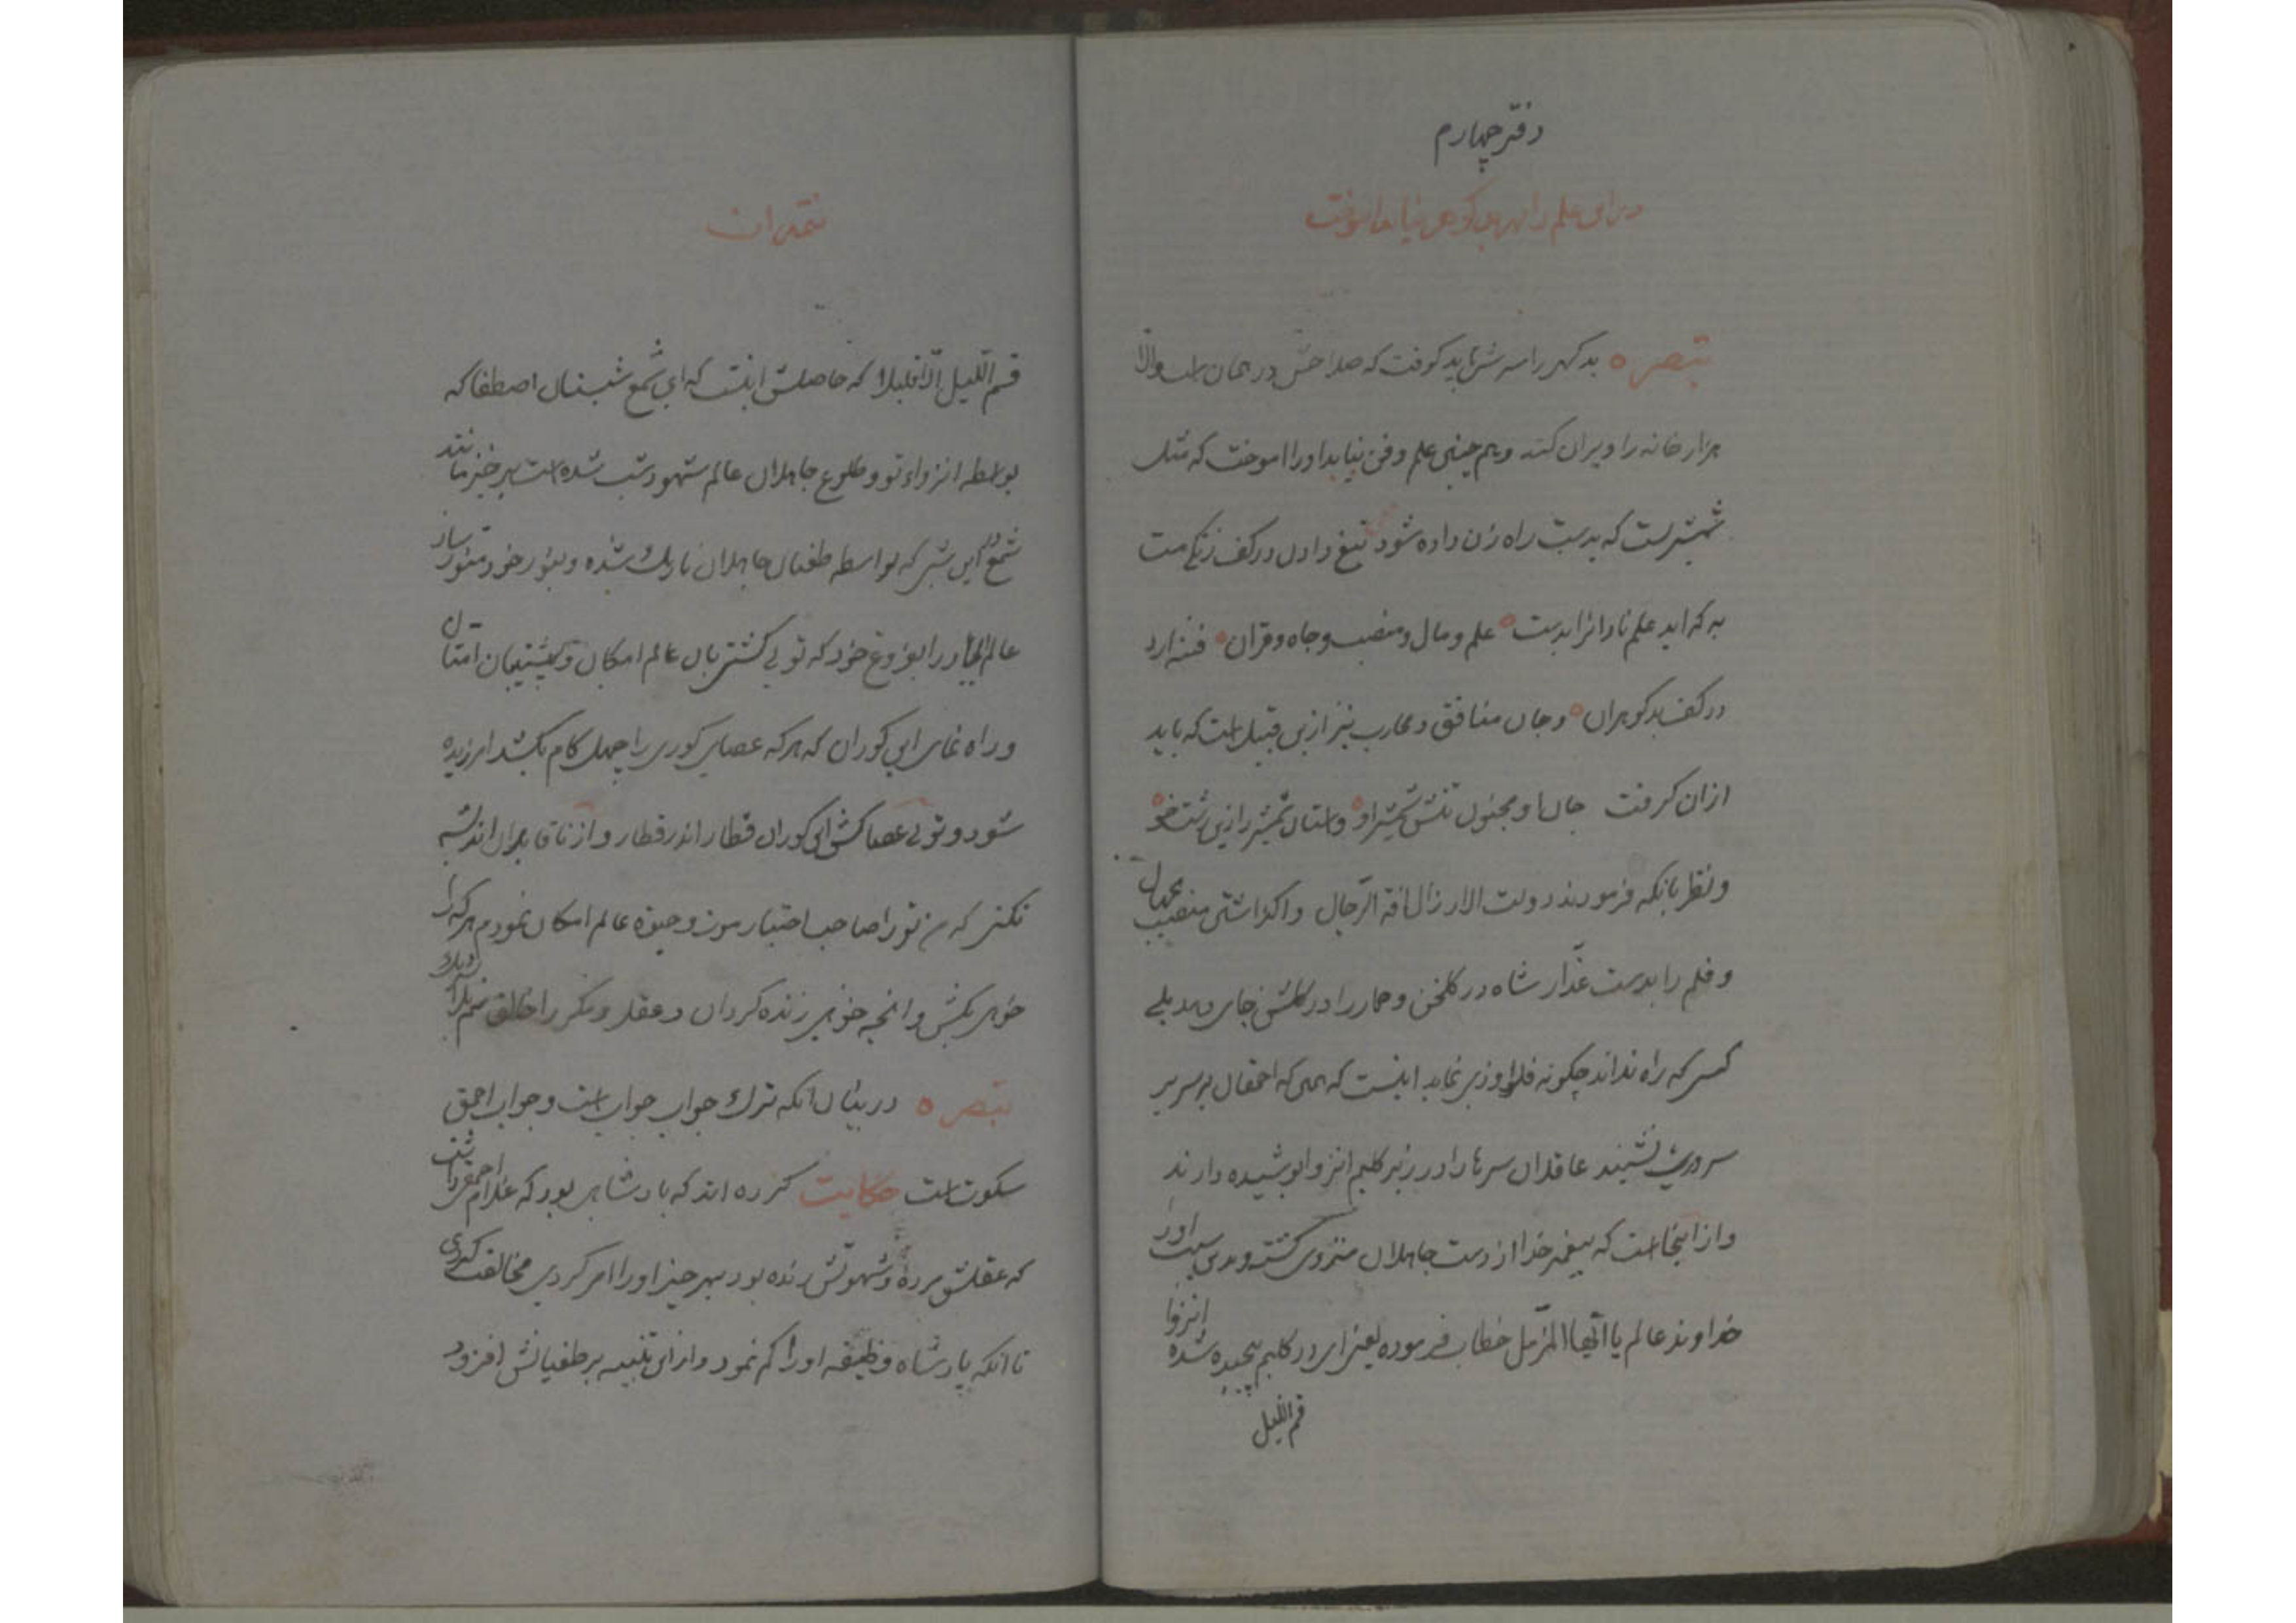 دفتر چهارم
در این علم را بهر بدگوهر نباید آموخت
تبصره بدگهر را سرش باید کوفت که صلاحش در همان است والّا
هزار خانه را ویران کند و هم چنین علم و فن نباید او را اموخت که مثل
شمشیریست که بدست راه زن داده شود تیغ دادن در کف زنگی مست
به که اید علم نادانرا بدست علم و مال و منصب و جاه و قران فتنه ارد
در کف بدگوهران و جان منافق و محارب نیز ازین قبیل است که باید
ازان گرفت جان او مجنون تنش شمشیر او واستان شمشیر را زین زشت خو
و نظر بانکه فرمودند دولت الارذال افة الرّجال واگذاشتن منصب بجهال
و قلم را بدست غدّار شاه در گلخن و حمار را در گلشن جای دهد بلے
کسی که راه نداند چگونه قلاوزی نماید اینست که همی که احمقان بر سریر
سروری نشینند عاقلان سرها را در زیر گلیم انزوا پوشیده دارند
و از اینجاست که پیغمبر خدا از دست جاهلان منزوی گشته و بدین سبب او را
خداوند عالم یا ایّها المزّمل خطاب فرموده یعنی ای در گلیم انزوا پیچیده شده
قم اللّیل
تتمه ان
قم اللّیل الّا قلیلا که حاصلش اینست که ای شمع شبستان اصطفا که
بواسطه انزواء تو و طلوع جاهلان عالم شهود شب شده است برخیز مانند
شمع در این شب که بواسطه طغیان جاهلان تاریک شده و بنور خود منور ساز
عالم ایجاد را بفروغ خود که توئی کشتی بان عالم امکان و پشتیبان امتان
و راه نمای این کوران که هر که عصای کوری را چهل گام بکشد امرزیده
شود و توئی عصاکش این کوران قطار اندر قطار و از ناقابلان اندیشه
نکنی که من تو را صاحب اختیار موت و حیوة عالم امکان نمودم هر که را
خواهی بکش و انچه خواهی زنده گردان و عقل و مکر را خالق منم
تبصره در بیان انکه ترک جواب جواب است و جواب احمق
سکوت است حکایت کرده اند که پادشاهی بود که غلام احمقی داشت
که عقلش مرده و شهوتش زنده بود بهر چیز او را امر کردی مخالفت کردی
تا انکه پادشاه وظیفه او را کم نمود و از این تنبیه بر طغیانش افزود